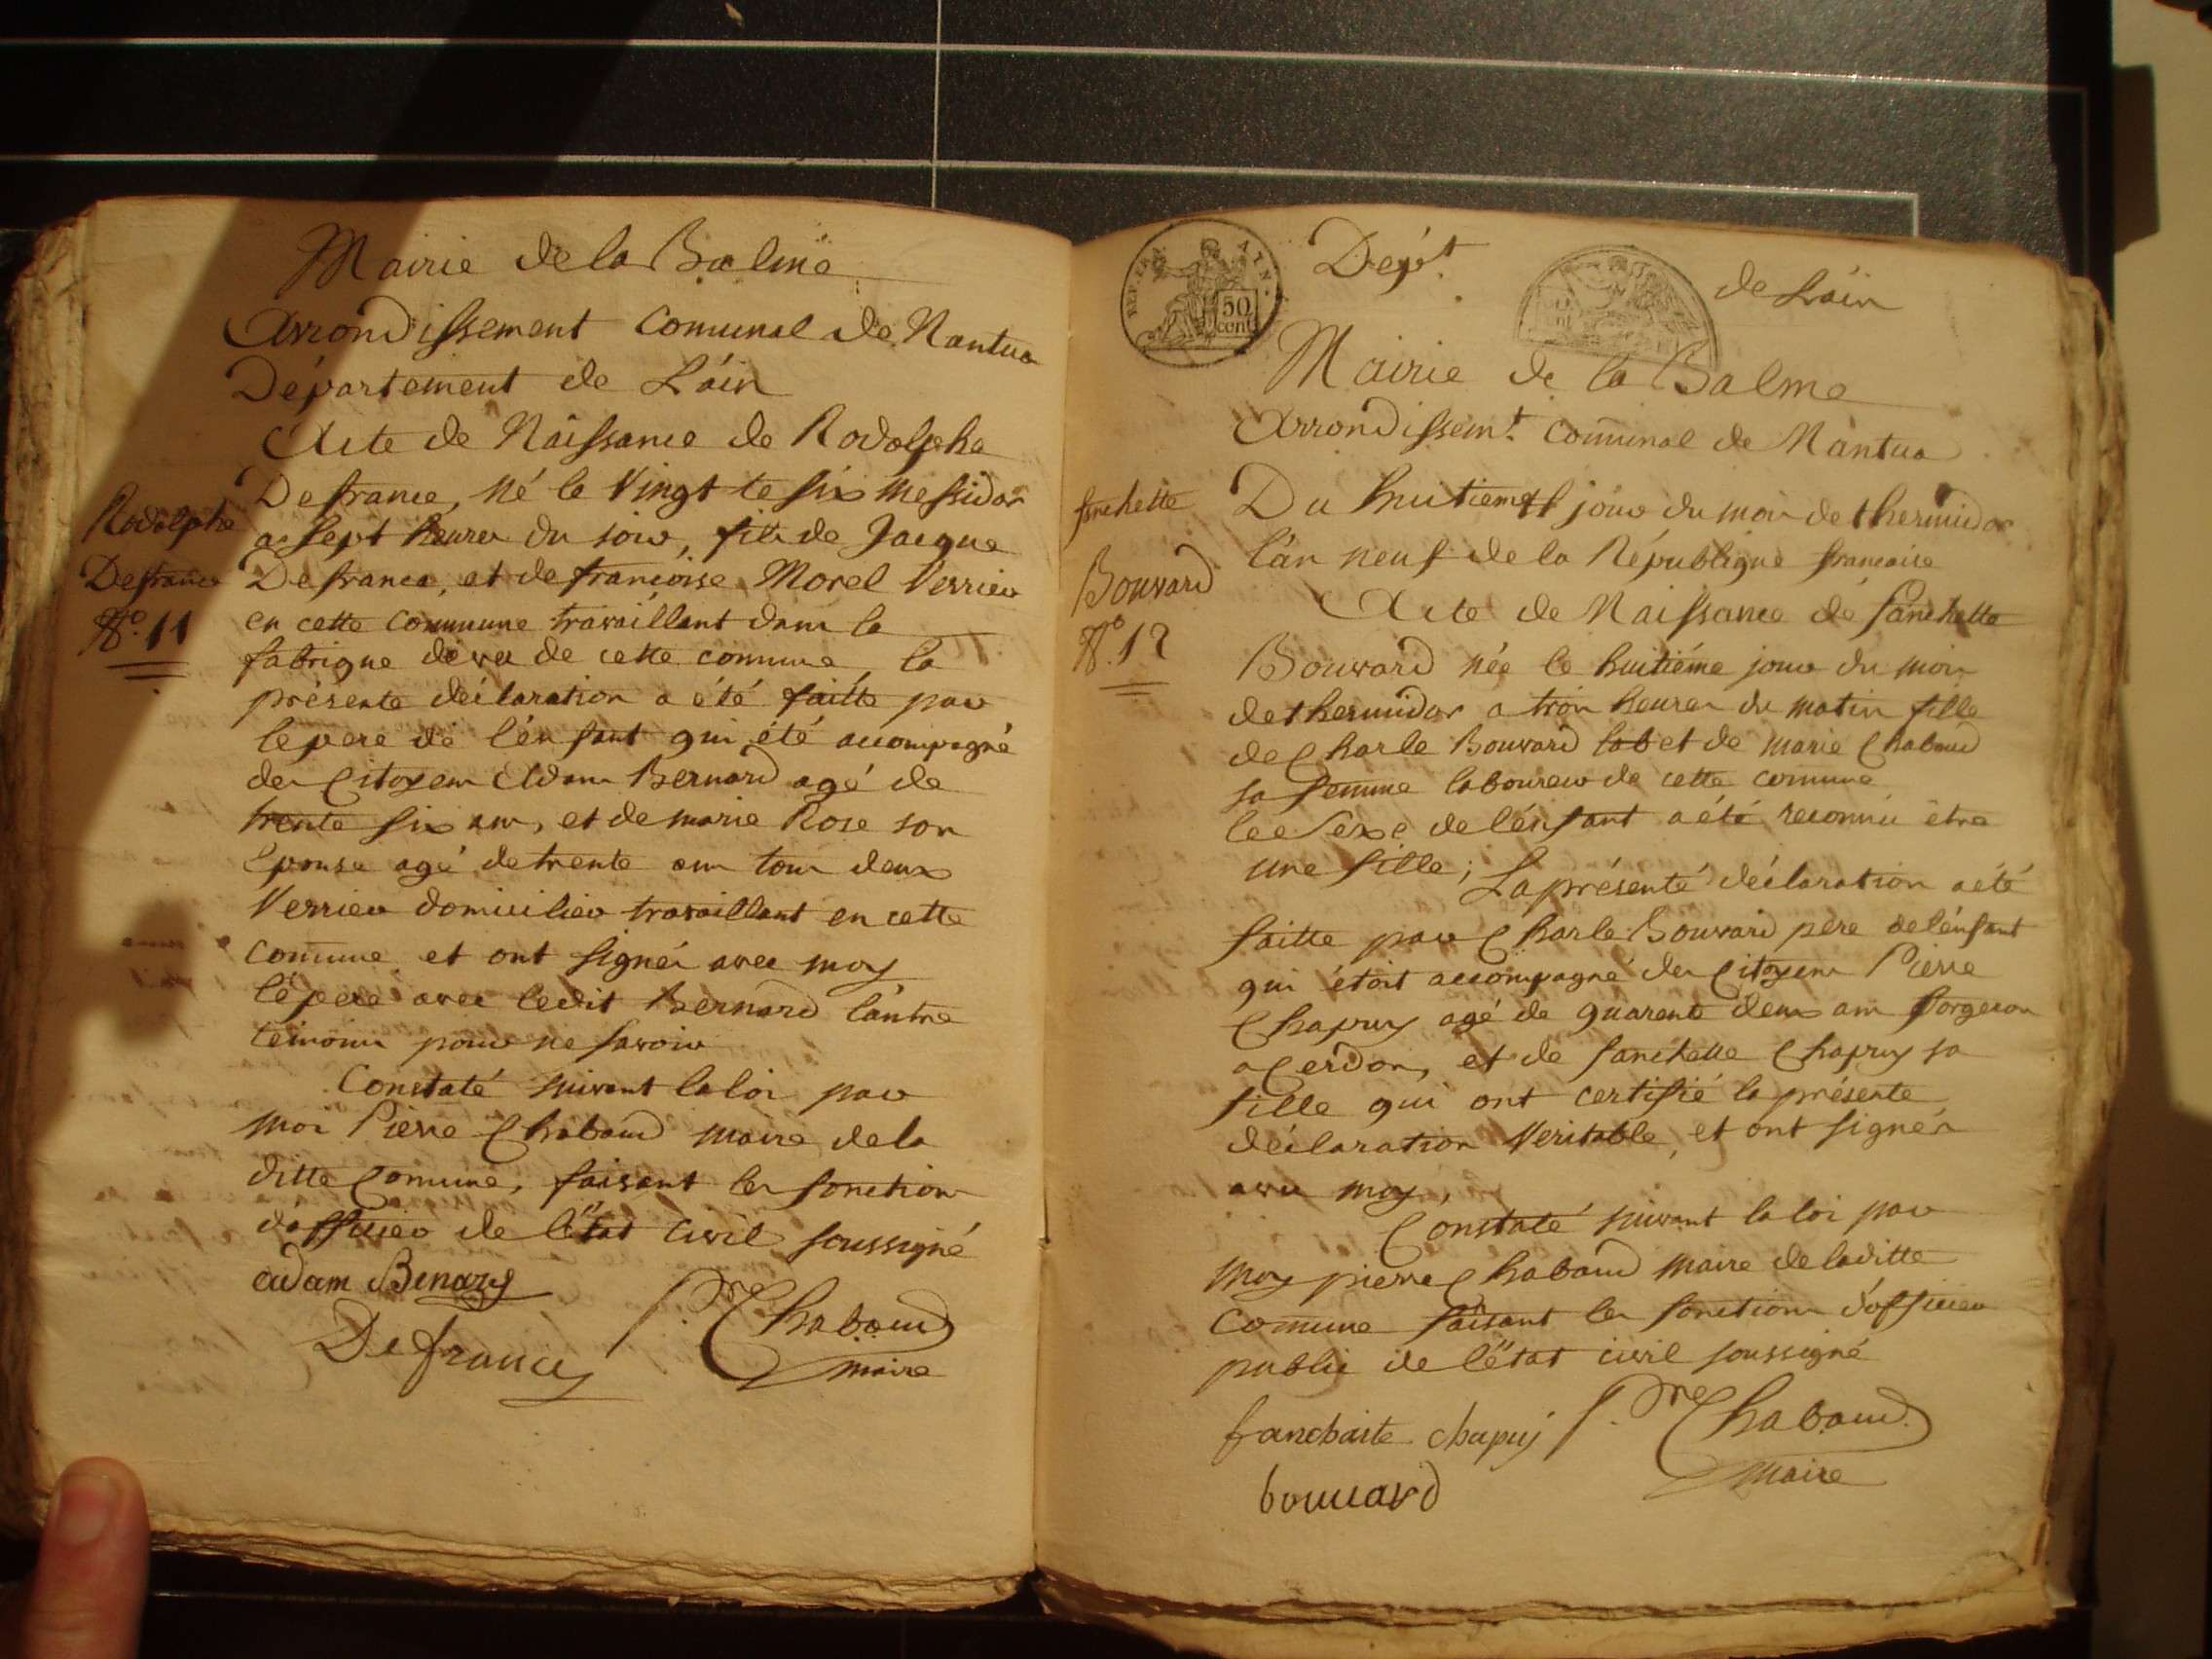 Mairie de la Balme
Arrondissement Comunal de Nantua
Département de Láin
Acte de Naissance de Rodolphe
Defrance, né le Vingt te six messidor
a sept heures du soir, fils de Jacque
Defrance, et de françoise Morel Verrier
en cette Commune travaillant dans la
fabrique de ver de cette commune, la
présente déclaration a été faitte par
le pere de l'énfant qui été accompagné
des Citoyens Adam Bernard agé de
trente six ans, et de marie Rose son
Epouse agé de trente ans tous deux
Verrier domicilier travaillant en cette
Comune et ont signés avec moy
lé pere avec ledit Bernard l'autre
témoins pour ne savoir
Constaté suivant la loi par
moi Pierre Chaboud maire de la
ditte Comune, faisant les fonctions
d'officier de l'état Civil soussigné
adam Benarg
P.re Chaboud
Defrance
maire
Rodolphe
Defrance
N.º 11
REP. FRA. 50 cent ATN.
Dep.t de Láin
Mairie de la Balme
Arrondissem.t Comunal de Nantua
Du huitieme jour du mois de thermidor
l'án neuf de la République francaise
Acte de Naissance de fanchette
Bouvard née le huitiéme jour du mois
de thermidor a trois heures du matin fille
de Charle Bouvard lab et de marie Chaboud
sa femme laboureur de cette comune
le Sexe de l'énfant a été reconnu être
une fille; La présenté déclaration a été
faitte par Charle Bouvard père de l'énfant
qui étoit accompagné des Citoyens Pierre
Chapuy agé de quarente deux ans forgeron
a Cerdon, et de fanchette Chapuy sa
fille qui ont certifié la présente
déclaration Veritable, et ont signés
avec moy,
Constaté suivant la loi par
moy pierre Chaboud maire de laditte
Comune faisant les fonctions d'officier
public de l'état civil soussigné
franchaite chapuy P.re Chaboud
maire
bouuard
fanchette
Bouvard
N.º 12